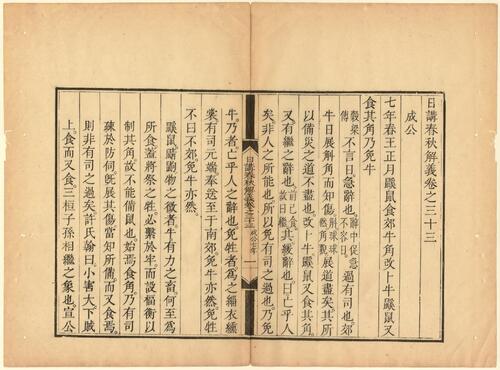 日講春秋解義卷之三十三
成公
七年春王正月鼷鼠食郊牛角改卜牛鼷鼠又
食其角乃免牛
穀梁傳不言日急辭也辭中促急不容日過有司也郊
牛日展斛角而知傷斛球球然角貌展道盡矣其所
以備災之道不盡也改卜牛鼷鼠又食其角
又有繼之辭也前已食故曰繼其緩辭也曰亡乎人
矣非人之所能也所以免有司之過也乃免
日講春秋解義卷之三十三 成公七年 一
牛乃者亡乎人之辭也免牲者爲之緇衣纁
裳有司元端奉送至于南郊免牛亦然免牲
不曰不郊免牛亦然
鼷鼠物之微者牛有力之畜何至爲
所食蓋將祭之牲必繫於牢而設楅衡以
制其角故不能備鼠也始焉食角乃有司
疎於防伺旣展其傷當知所備而又食焉
則非有司之過矣許氏翰曰小害大下賊
上食而又食三桓子孫相繼之象也宣公